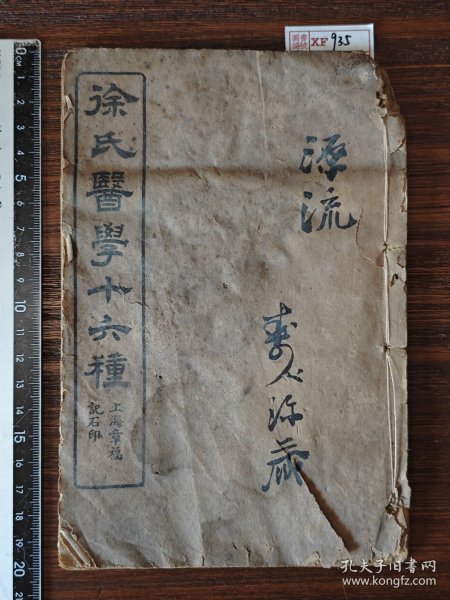 徐氏醫學十六種
上海章福
記石印
源流
壽人珎藏
圖書編號
XF
935
0CM 1 2 3 4 5 6 7 8 9 10 11 12 13 14 15 16 17 18 19 20
孔夫子旧书网
www.kongfz.com